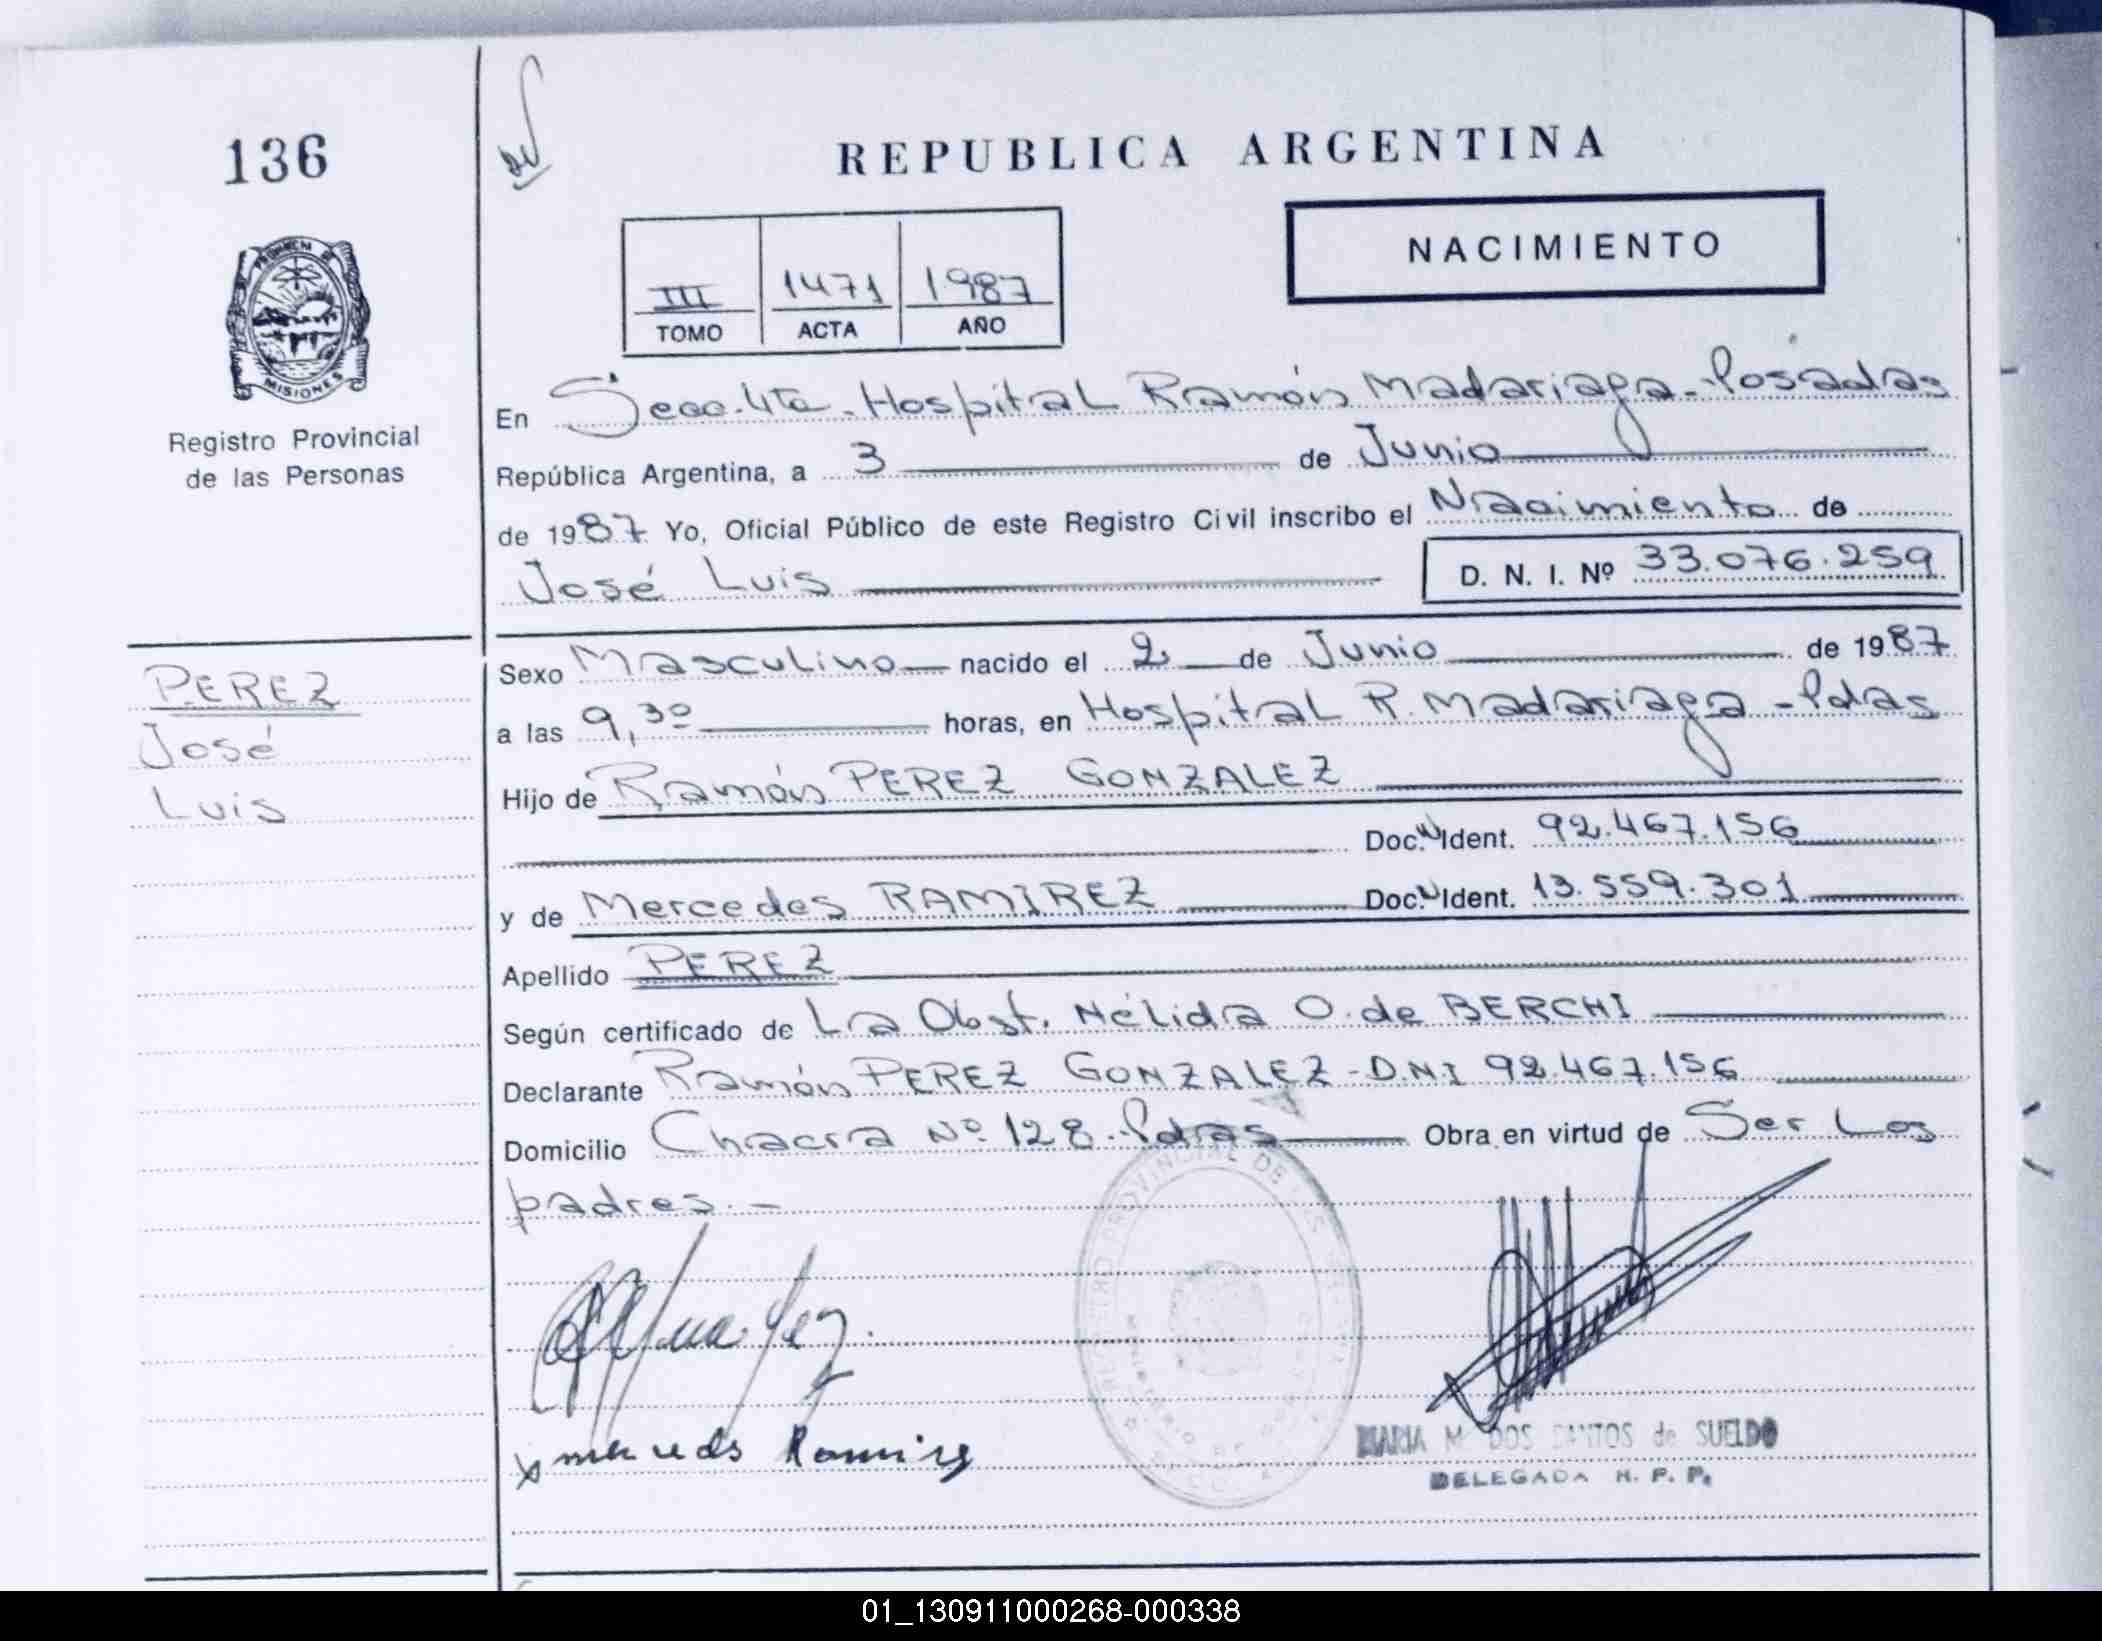 136
REPUBLICA ARGENTINA
NACIMIENTO
III 1471 1987
TOMO ACTA AÑO
PROVINCIA DE
MISIONES
Registro Provincial
de las Personas
En Secc. 4ta. Hospital Ramón Madariaga - Posadas
República Argentina, a 3 de Junio
de 1987 Yo, Oficial Público de este Registro Civil inscribo el Nacimiento de
José Luis D. N. I. Nº 33.076.259
PEREZ
José
Luis
Sexo Masculino nacido el 2 de Junio de 1987
a las 9,30 horas, en Hospital R. Madariaga - Pdas
Hijo de Ramón PEREZ GONZALEZ
Doc. Ident. 92.467.156
y de Mercedes RAMIREZ Doc. Ident. 13.559.301
Apellido PEREZ
Según certificado de La Obst. Nélida O. de BERCHI
Declarante Ramón PEREZ GONZALEZ - D.N.I 92.467.156
Domicilio Chacra Nº 128. Pdas Obra en virtud de Ser Los
padres. -
REGISTRO PROVINCIAL DE
x mercedes Ramirez
MARIA M. DOS SANTOS de SUELDO
DELEGADA R. P. P.
01_130911000268-000338